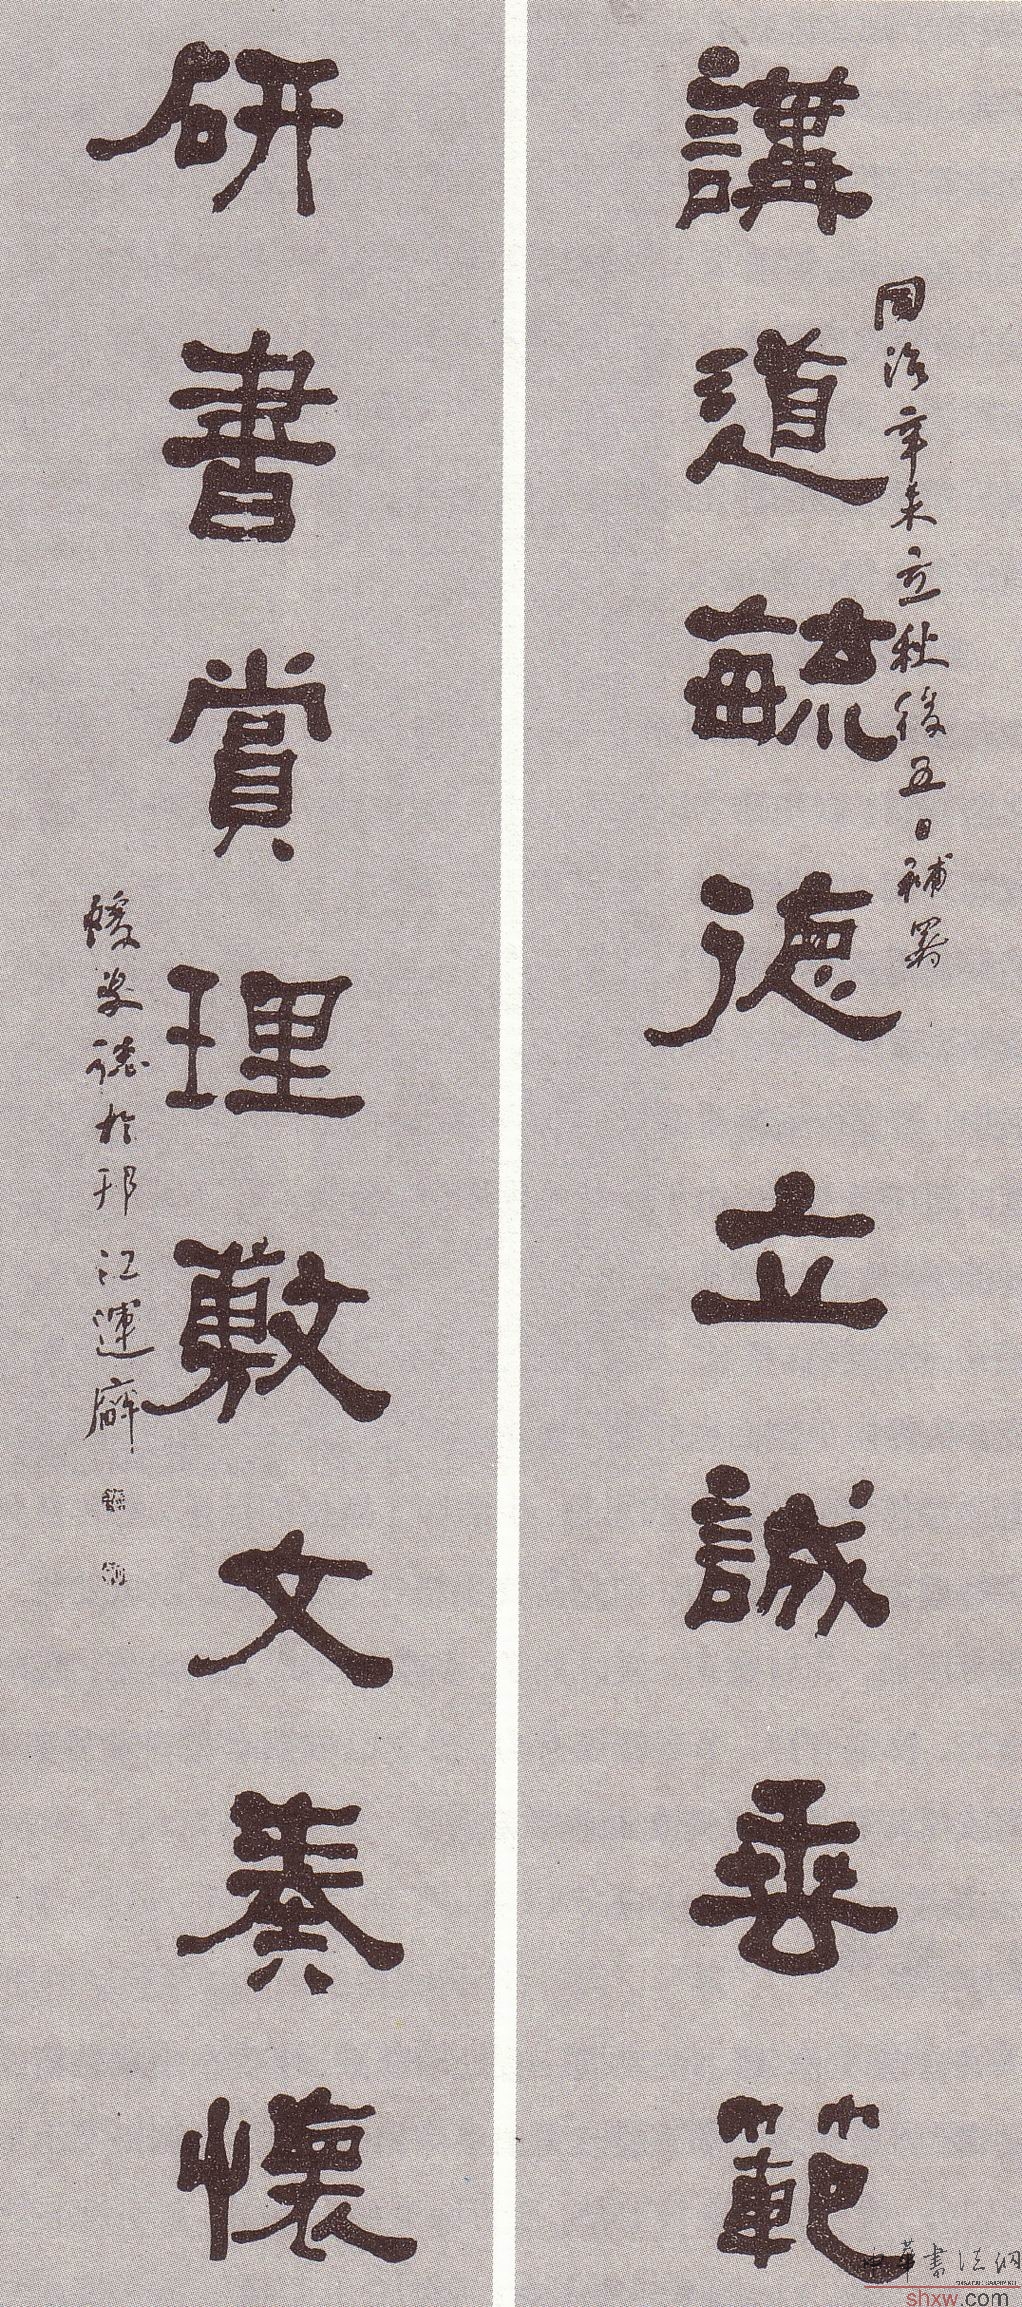 講道毓德立誠垂範
同治辛未立秋後五日補署
研書賞理敷文奏懷
蝯叟誌於邗江運廨
中華書法網
shxw.com